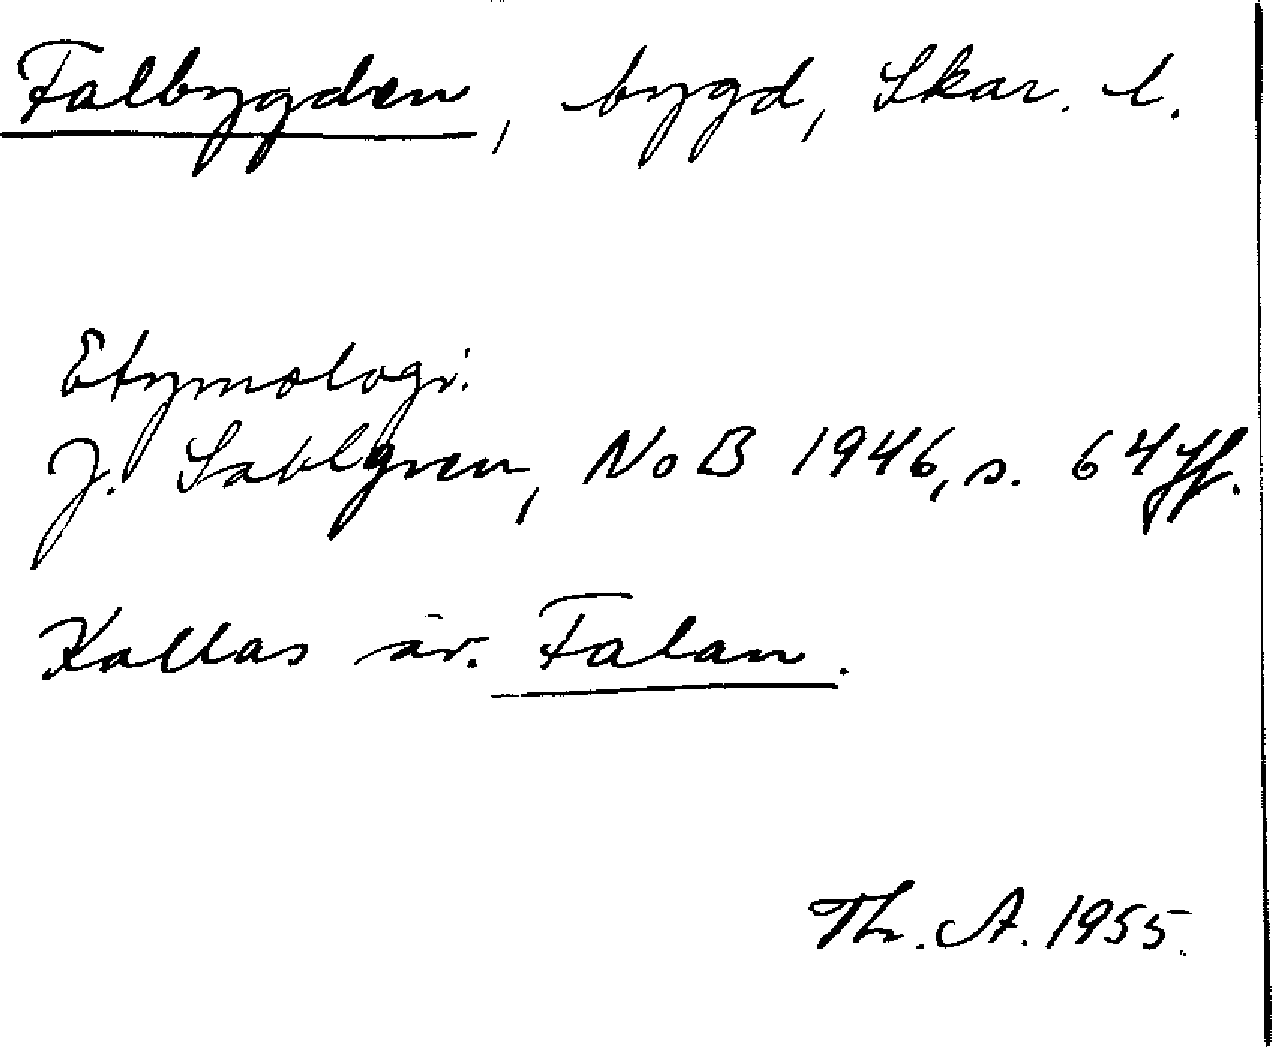 Falbygden, bygd, Skar. l.
Etymologi:
J. Sahlgren, NoB 1946, s. 64 ff.
Kallas äv. Falan.
Th. A. 1955.